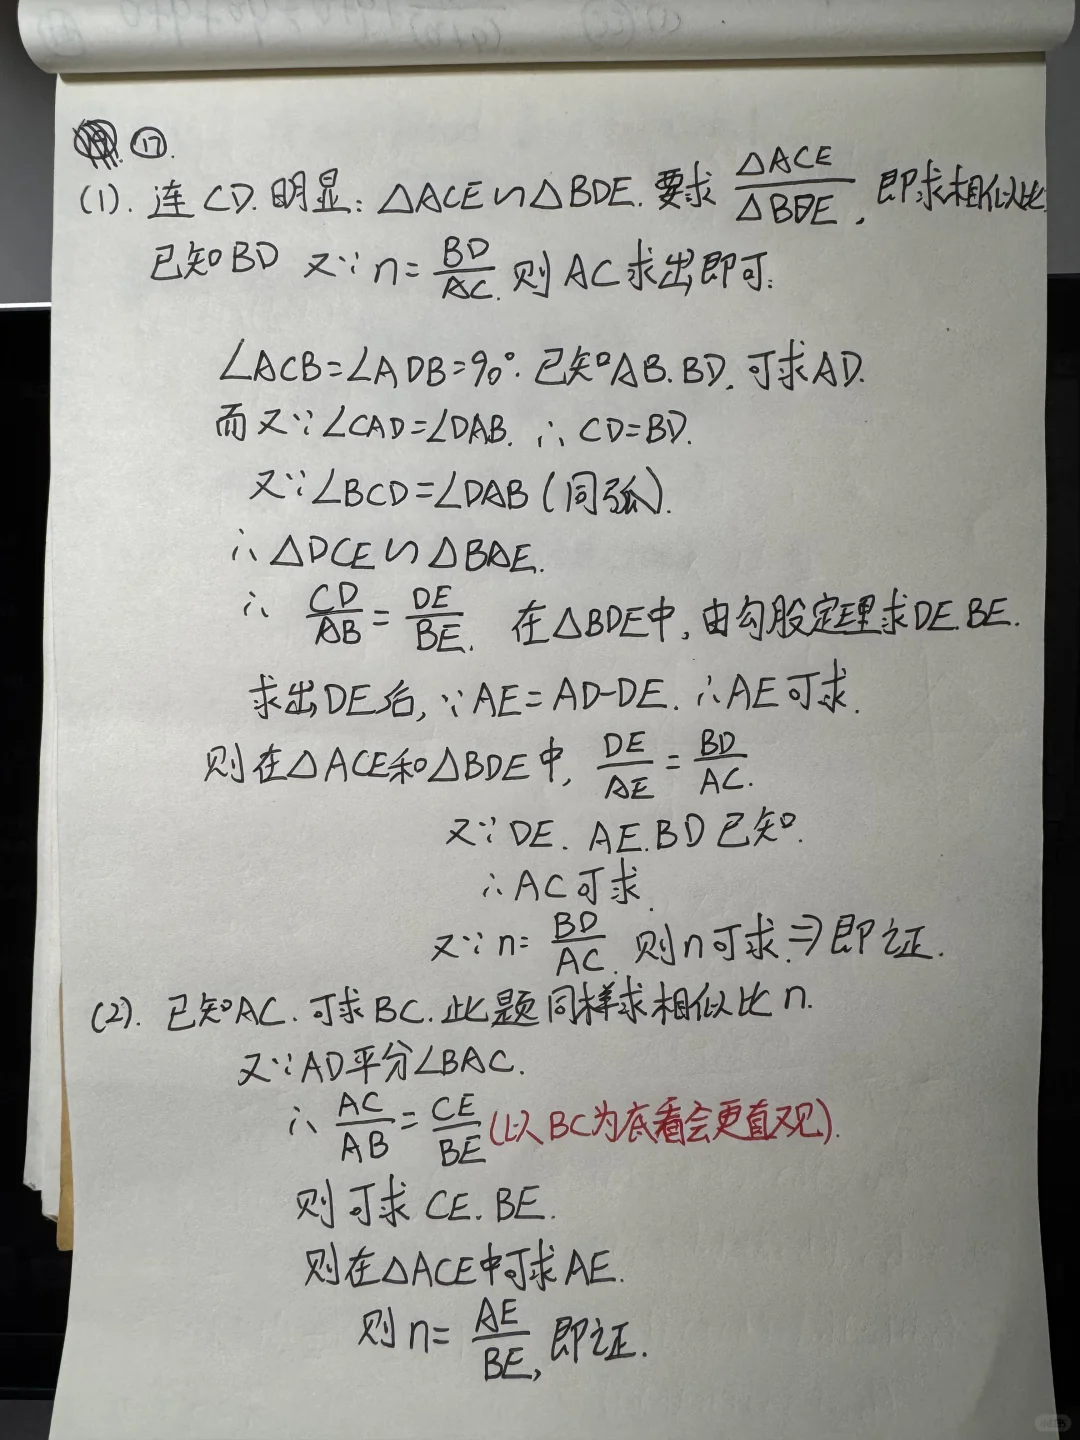 ⑰.
(1). 连CD. 明显: △ACE∽△BDE. 要求 △ACE/△BDE, 即求相似比
已知BD 又∵ n = BD/AC. 则AC求出即可.
∠ACB=∠ADB=90°. 已知AB. BD. 可求AD.
而又∵∠CAD=∠DAB. ∴ CD=BD.
又∵∠BCD=∠DAB (同弧).
∴ △DCE∽△BAE.
∴ CD/AB = DE/BE. 在△BDE中, 由勾股定理求DE. BE.
求出DE后, ∵ AE=AD-DE. ∴AE可求.
则在△ACE和△BDE中, DE/AE = BD/AC.
又∵ DE. AE. BD已知.
∴ AC可求.
又∵ n= BD/AC. 则n可求. ⇒ 即证.
(2). 已知AC. 可求BC. 此题同样求相似比n.
又∵AD平分∠BAC.
∴ AC/AB = CE/BE (以BC为底看会更直观).
则可求CE. BE.
则在△ACE中可求AE.
则n= AE/BE, 即证.